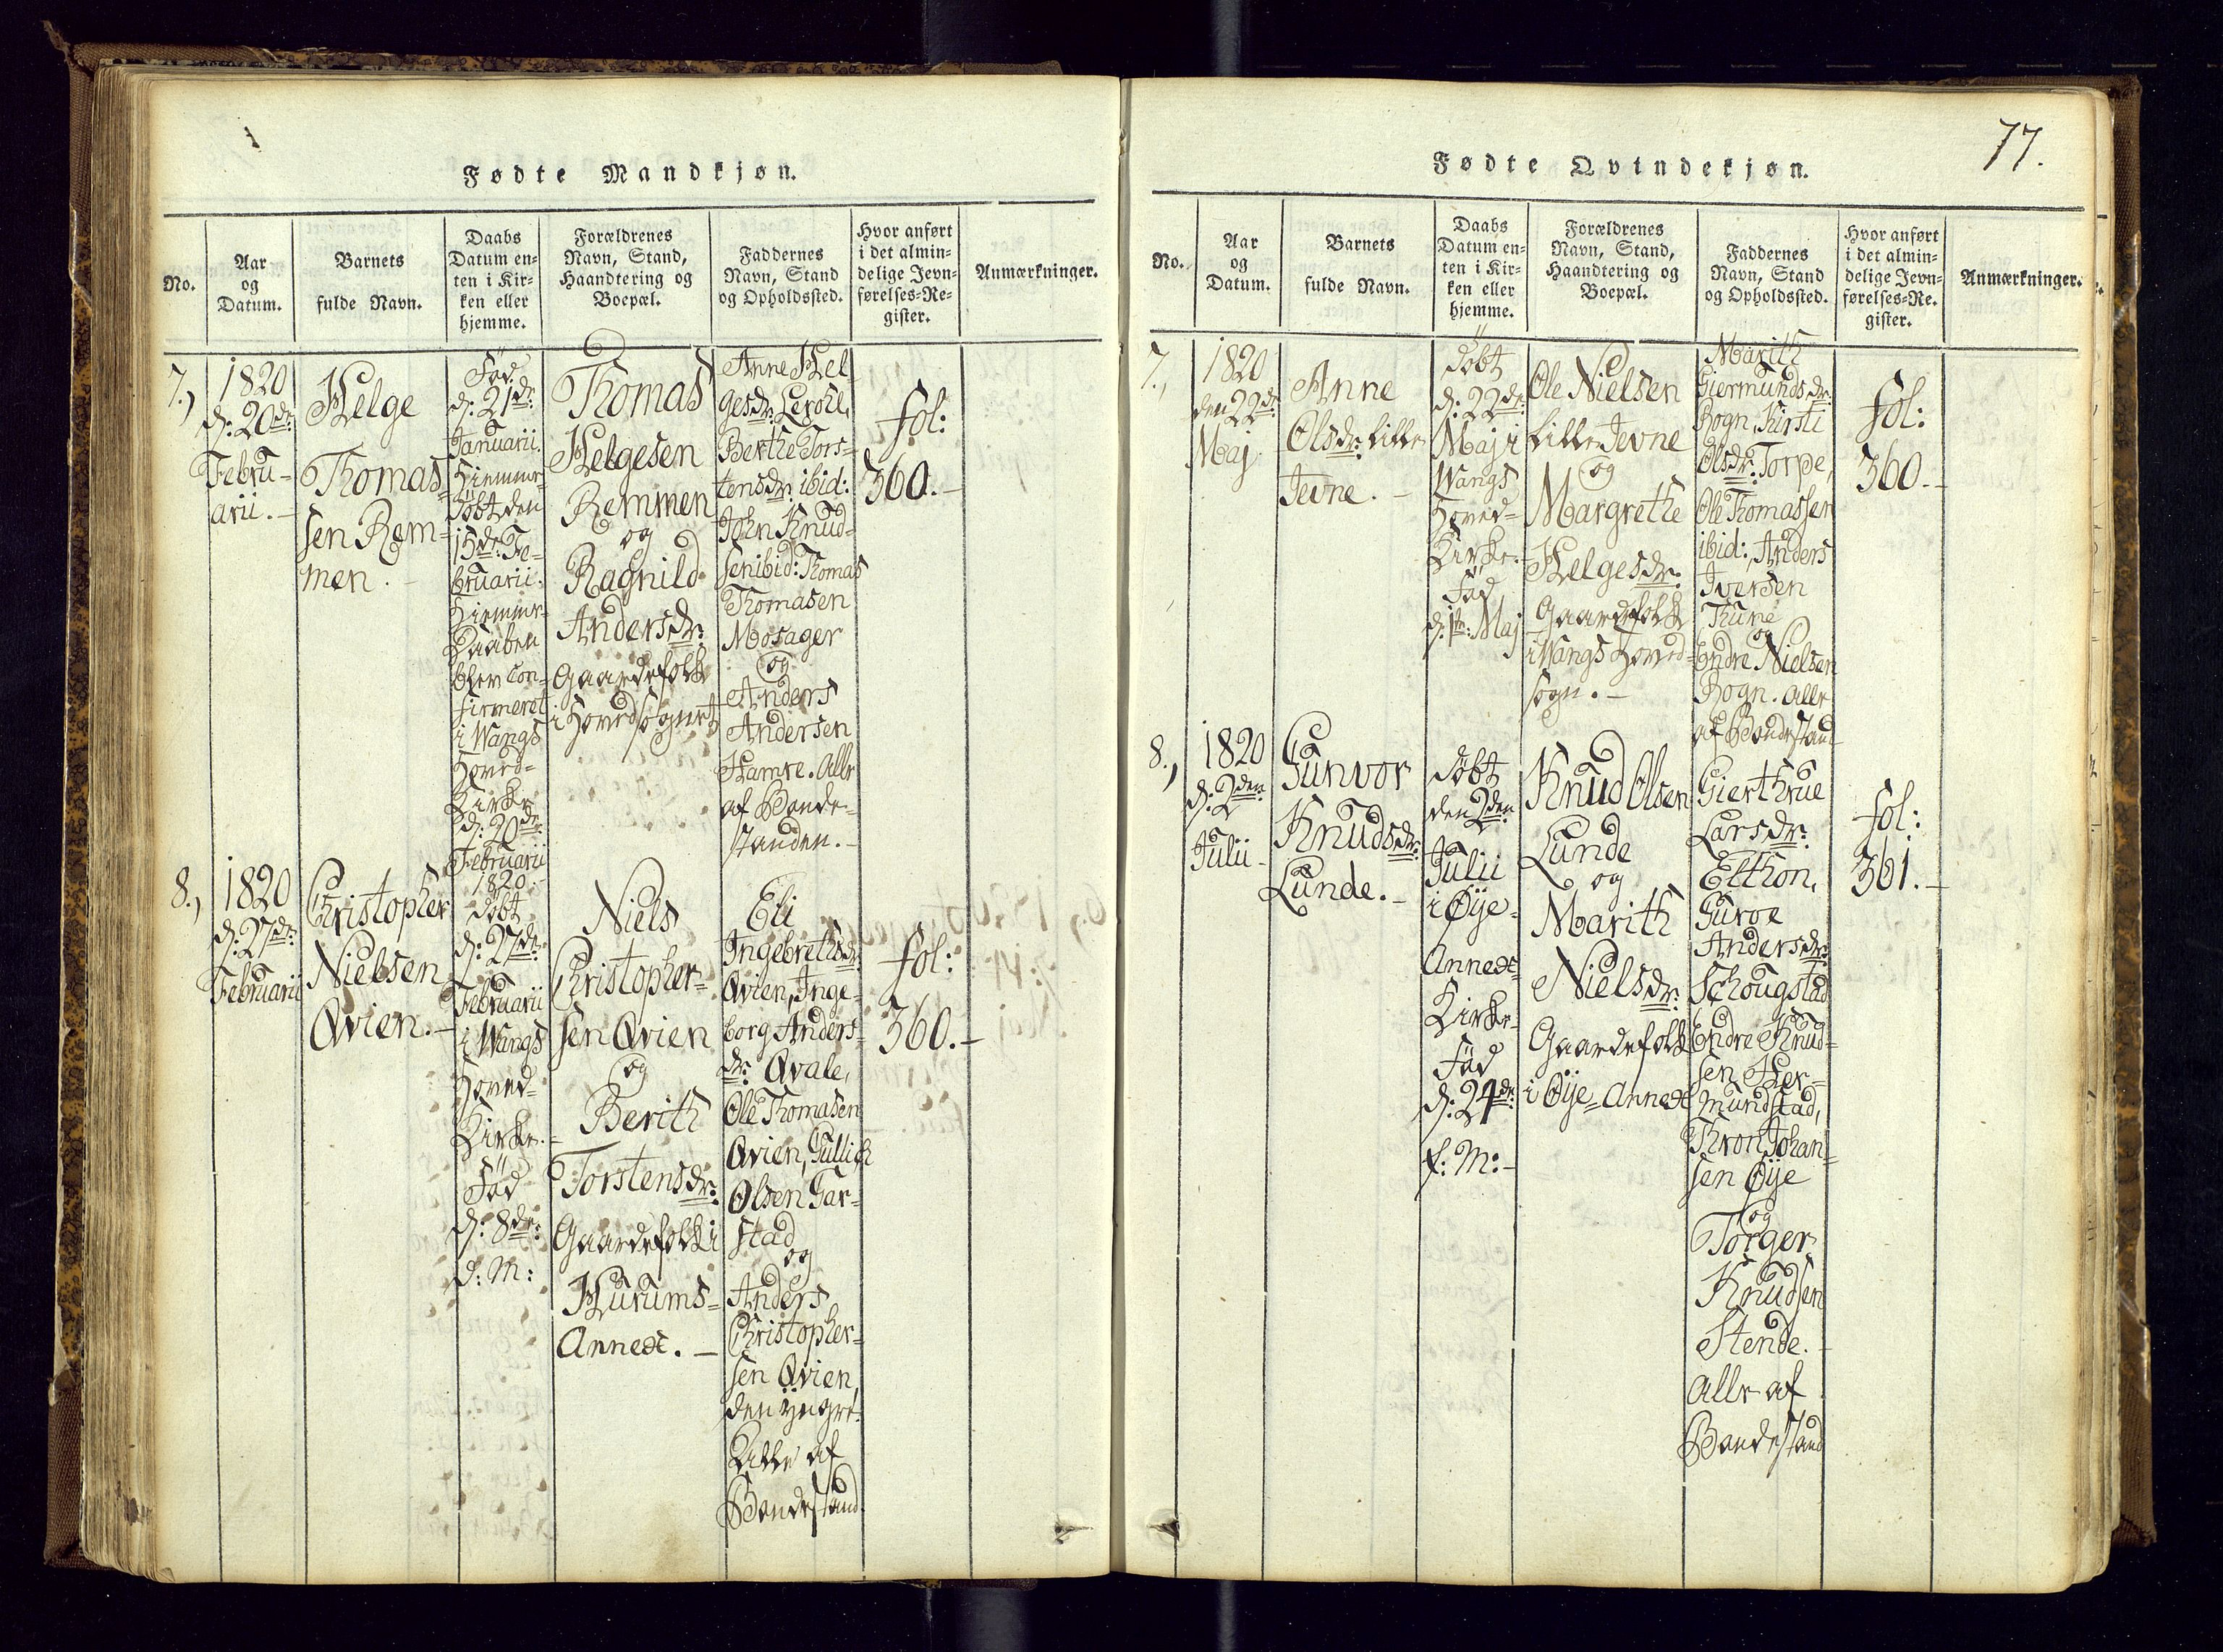 Fødte Mandkjøn.
No.
Aar
og
Datum.
Barnets
fulde Navn.
Daabs
Datum en-
ten i Kir-
ken eller
hjemme.
Forældrenes
Navn, Stand,
Haandtering og
Boepæl.
Faddernes
Navn, Stand
og Opholdssted.
Hvor anført
i det almin-
delige Jevn-
førelses-Re-
gister.
Anmærkninger.
7.,
1820
d: 20de:
Febru-
arii.-
Helge
Thomas-
sen Rem-
men.-
Fød
d: 21de:
Januarii.
Hjemme-
døbt den
15de: Fe-
bruarii.
Hjemme-
Daaben
blev Con-
firmeret
i Wangs
Hoved-
Kirke
d: 20de:
Februarii
1820.-
Thomas
Helgesen
Remmen
og
Ragnild
Andersdr:
Gaardefolk
i Hovedsognet
Anne Hel-
gesdr:
Berthe Tors-
tensdr: ibid:
John Knud-
sen ibid: Thomas
Thomasen
Mosager
og
Anders
Andersen
Hamre. Alle
af Bonde-
standen.-
fol:
360.-
8.,
1820
d: 27de:
Februarii
Christopher
Nielsen
Qvien.-
døbt
d: 27de:
Februarii
i Wangs
Hoved-
Kirke.-
Fød
d: 8de:
d: M:
Niels
Christopher-
sen Qvien
og
Berith
Torstensdr:
Gaardefolk i
Hurums-
Annex.-
Eli
Ingebrethsdr:
Qvien, Inge-
borg Anders-
dr: Qvale,
Ole Thomasen
Qvien, Gullich
Olsen Gar-
stad
og
Anders
Christopher-
sen Qvien
den yngre.
Alle af
Bondestand
fol:
360.-
77.
Fødte Qvindekjøn.
No.
Aar
og
Datum.
Barnets
fulde Navn.
Daabs
Datum en-
ten i Kir-
ken eller
hjemme.
Forældrenes
Navn, Stand,
Haandtering og
Boepæl.
Faddernes
Navn, Stand
og Opholdssted.
Hvor anført
i det almin-
delige Jevn-
førelses-Re-
gister.
Anmærkninger.
7.,
1820
den 22de
Maj
Anne
Olsdr: Lille
Jevne.-
døbt
d: 22de:
Maj i
Wangs
Hoved-
Kirke.-
Fød
d: 1te: Maj
Ole Nielsen
Lille Jevne
og
Margrethe
Helgesdr:
Gaardefolk
i Wangs Hoved-
sogn.-
Marith
Giermundsdr:
Rogn, Kirsti
Olsdr: Torpe,
Ole Thomassen
ibid:, Anders
Iversen
Thune
og
Endre Nielsen
Rogn. Alle
af Bondestand
fol:
360.-
8.,
1820
d: 2den:
Julii-
Gunvor
Knudsdr:
Lunde.-
døbt
den 2den
Julii
i Øye-
Annex-
Kirke-
Fød
d: 24de:
f: M:-
Knud Olsen
Lunde
og
Marith
Nielsdr:
Gaardefolk
i Øye-Annex
Gierthrue
Larsdr:
Elthon,
Guroe
Andersdr:
Schougstad
Endre Knud-
sen Her-
mundstad,
Thron Johan-
sen Øye
og
Torger
Knudsen
Stende.-
Alle af
Bondestand
fol:
361.-